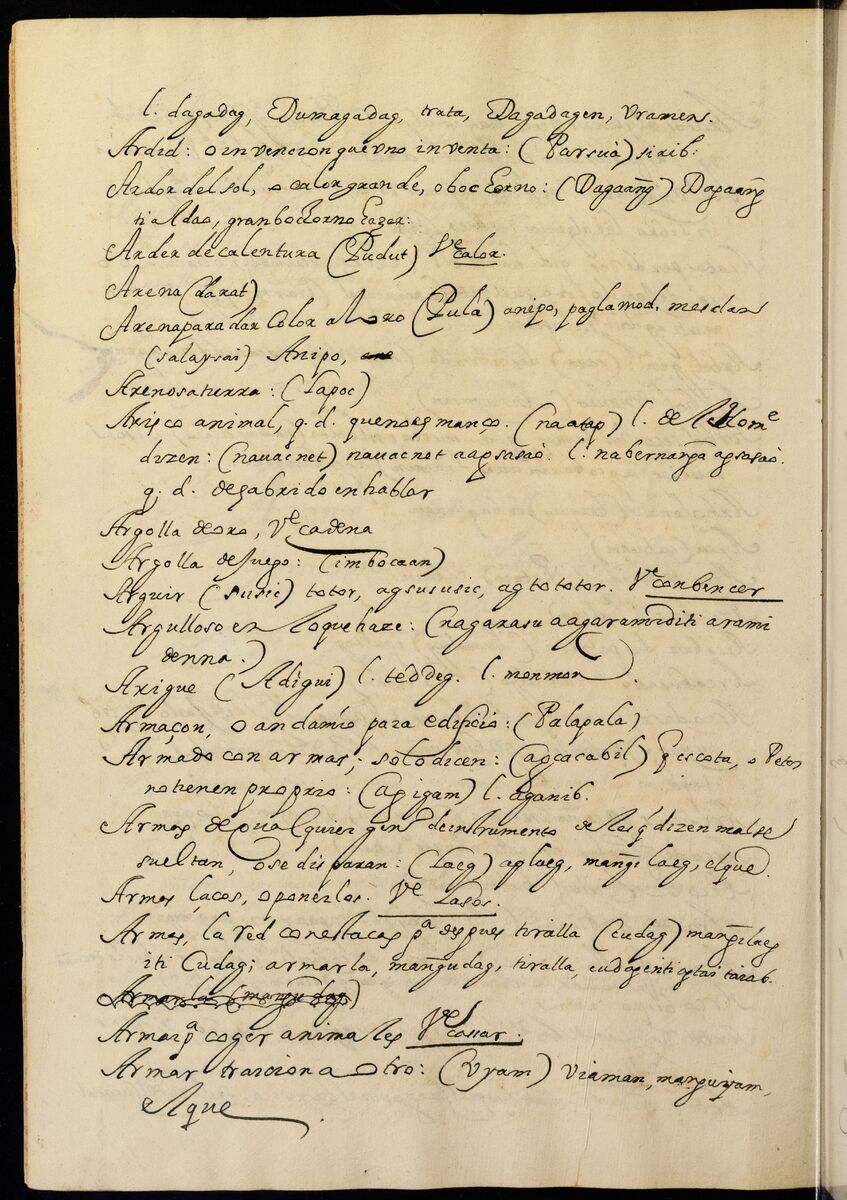 l. dagadag, Dumagadag, trata, Dagadagen, Vramens.
Ardid: o invencion que vno inventa: (Parsuà) sirib:
Ardor del sol, o calor grande, o bochorno: (Dagaang̃) Dagaang̃
ti aldao, gran bochorno hazer:
Arder de calentura (Pudut) Vᵉ calor.
Arena (darat)
Arena para dar color al oro (Pula) anipo, paglamod, mesclan
(salaysai) Anipo,
Arenosa tierra: (Lapoc)
Arisco animal, q. d. que no es manço. (naatap) l. del homᵉ
dizen: (nauacnet) nauacnet aagsasaò. l. nabernang̃a agsasaò.
q. d. desabrido en hablar
Argolla de oro, Vᵉ cadena
Argolla de fuego: (imbocaan)
Arguir (susic) totor, agsususic, agtototor. Vᵉ conbencer
Argulloso en lo que haze: (nagarasu aagaramid iti arami
denna.)
Arigue (Adigui) l. teddeg. l. monmon.
Armaçon, o andamio para edificio: (Palapala)
Armado con armas; solo dicen: (agcacabil) q̃ es cota, o Peto
no tienen proprio: (agigam) l. aganib.
Armas de qualquier genᵒ de instrumento de las q̃ dizen mal se
sueltan, o se disparan: (Laeg) aglaeg, mang̃ilaeg, el que.
Armar laços, o ponerlos. Vᵉ Lasos.
Armar, la red con estacas pᵃ despues tiralla (cudag) mang̃ilaeg
iti Cudag; armarla, mang̃udag, tiralla,
Armar pᵃ coger animales Vᵉ cassar.
Armar traicion a otro: (Vyam) Viaman, mang̃uyam,
el que